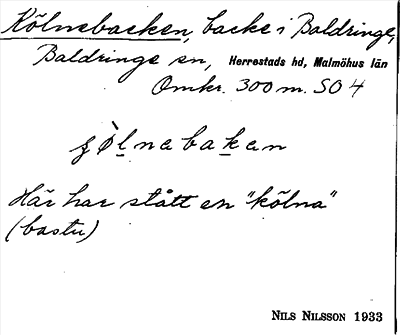 Kölnebacken, backe i Baldringe,
Baldringe sn, Herrestads hd, Malmöhus län
Omkr. 300 m. SO 4
kölnabakan
Här har stått en "kölna"
(bastu)
NILS NILSSON 1933